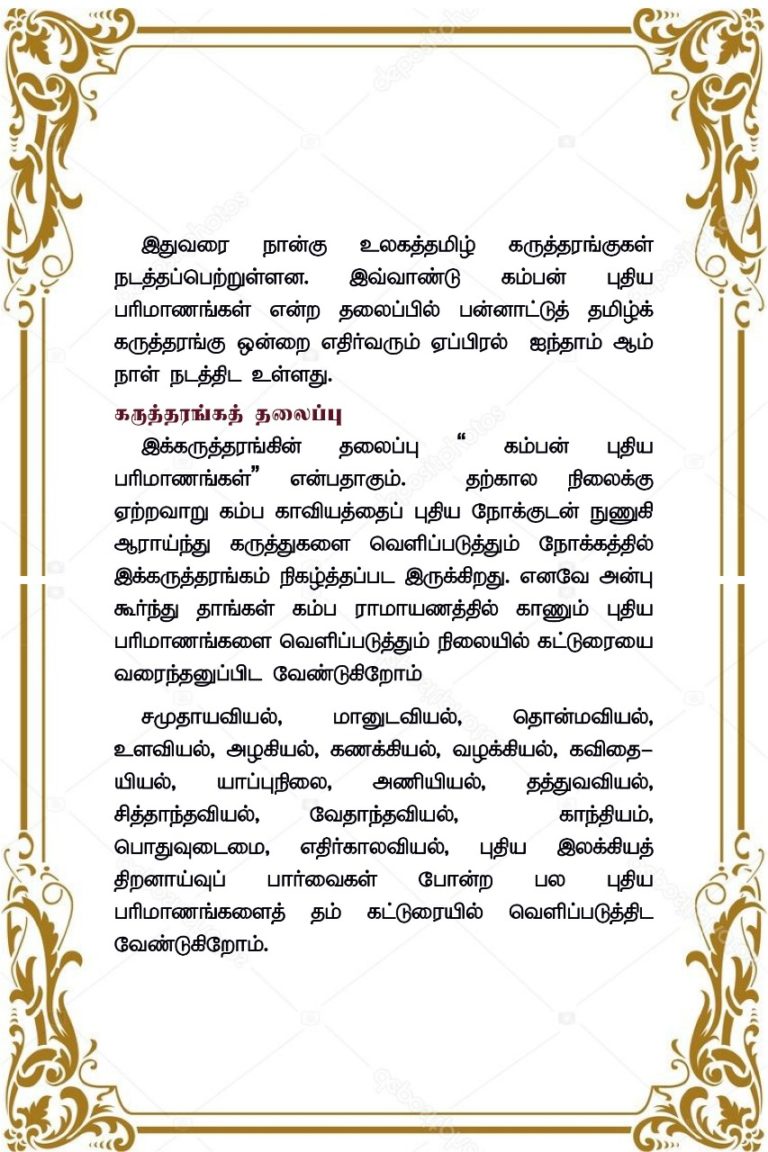 இதுவரை நான்கு உலகத்தமிழ் கருத்தரங்குகள்
நடத்தப்பெற்றுள்ளன. இவ்வாண்டு கம்பன் புதிய
பரிமாணங்கள் என்ற தலைப்பில் பன்னாட்டுத் தமிழ்க்
கருத்தரங்கு ஒன்றை எதிர்வரும் ஏப்பிரல் ஐந்தாம் ஆம்
நாள் நடத்திட உள்ளது.
கருத்தரங்கத் தலைப்பு
இக்கருத்தரங்கின் தலைப்பு “ கம்பன் புதிய
பரிமாணங்கள்” என்பதாகும். தற்கால நிலைக்கு
ஏற்றவாறு கம்ப காவியத்தைப் புதிய நோக்குடன் நுணுகி
ஆராய்ந்து கருத்துகளை வெளிப்படுத்தும் நோக்கத்தில்
இக்கருத்தரங்கம் நிகழ்த்தப்பட இருக்கிறது. எனவே அன்பு
கூர்ந்து தாங்கள் கம்ப ராமாயணத்தில் காணும் புதிய
பரிமாணங்களை வெளிப்படுத்தும் நிலையில் கட்டுரையை
வரைந்தனுப்பிட வேண்டுகிறோம்
சமுதாயவியல், மானுடவியல், தொன்மவியல்,
உளவியல், அழகியல், கணக்கியல், வழக்கியல், கவிதை-
யியல், யாப்புநிலை, அணியியல், தத்துவவியல்,
சித்தாந்தவியல், வேதாந்தவியல், காந்தியம்,
பொதுவுடைமை, எதிர்காலவியல், புதிய இலக்கியத்
திறனாய்வுப் பார்வைகள் போன்ற பல புதிய
பரிமாணங்களைத் தம் கட்டுரையில் வெளிப்படுத்திட
வேண்டுகிறோம்.